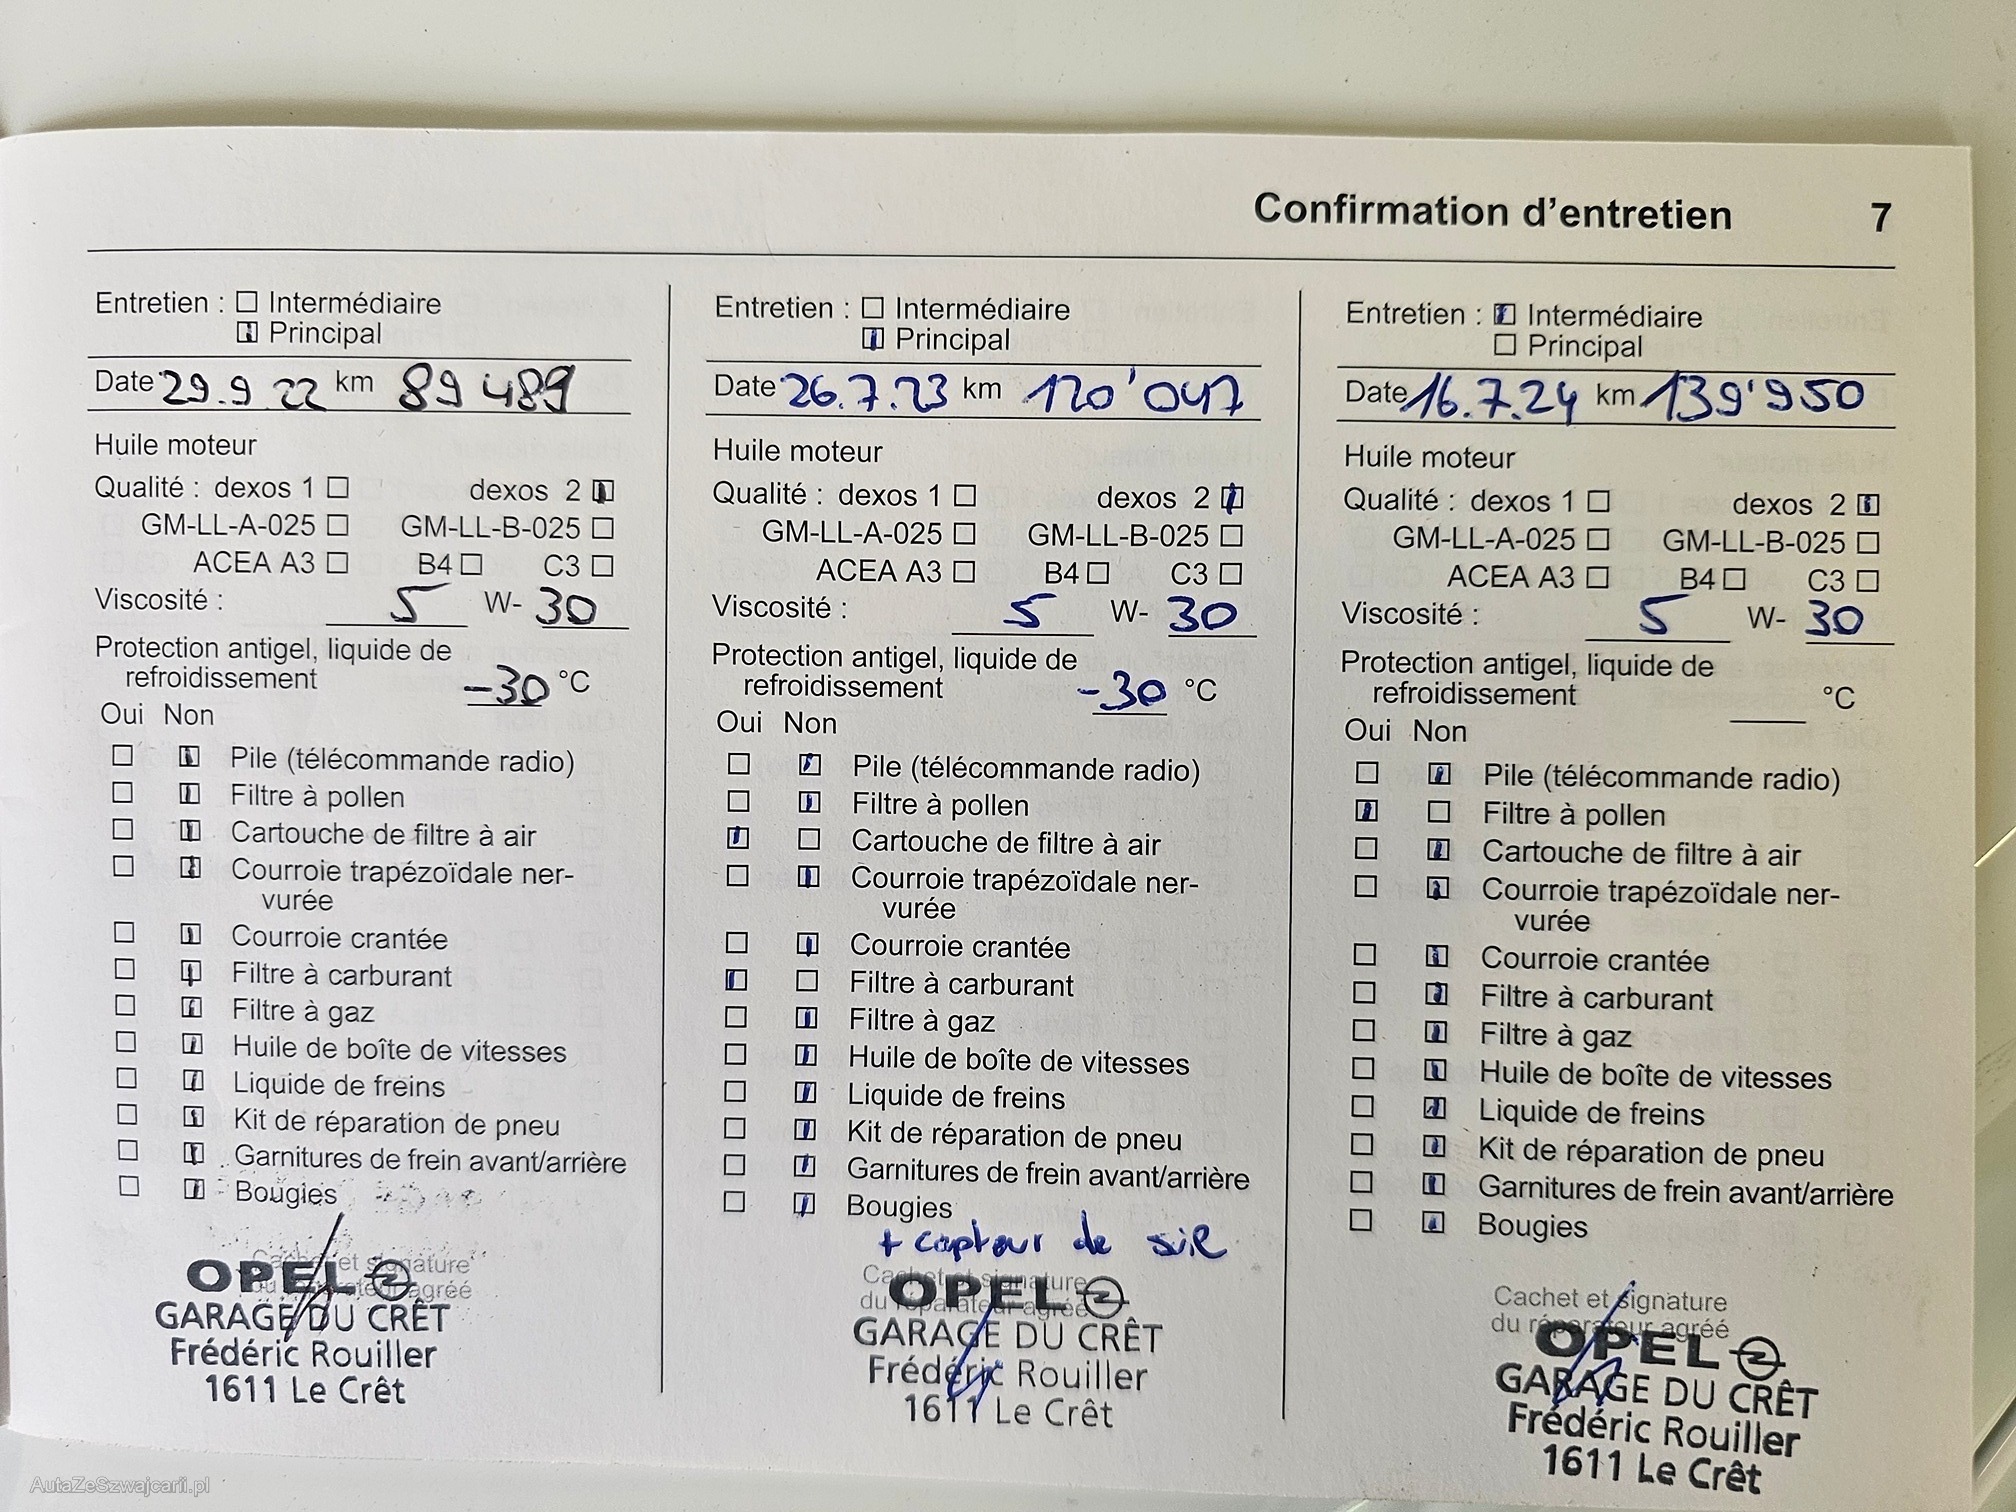 Confirmation d'entretien 7
Entretien : ☐ Intermédiaire
☒ Principal
Date 29.9.22 km 89 489
Huile moteur
Qualité : dexos 1 ☐ dexos 2 ☒
GM-LL-A-025 ☐ GM-LL-B-025 ☐
ACEA A3 ☐ B4 ☐ C3 ☐
Viscosité : 5 W- 30
Protection antigel, liquide de
refroidissement -30 °C
Oui Non
☐ ☒ Pile (télécommande radio)
☐ ☒ Filtre à pollen
☐ ☒ Cartouche de filtre à air
☐ ☒ Courroie trapézoïdale ner-
vurée
☐ ☒ Courroie crantée
☐ ☒ Filtre à carburant
☐ ☒ Filtre à gaz
☐ ☒ Huile de boîte de vitesses
☐ ☒ Liquide de freins
☐ ☒ Kit de réparation de pneu
☐ ☒ Garnitures de frein avant/arrière
☐ ☒ Bougies
Cachet et signature
du réparateur agréé
OPEL
GARAGE DU CRÊT
Frédéric Rouiller
1611 Le Crêt
Entretien : ☐ Intermédiaire
☒ Principal
Date 26.7.23 km 120'047
Huile moteur
Qualité : dexos 1 ☐ dexos 2 ☒
GM-LL-A-025 ☐ GM-LL-B-025 ☐
ACEA A3 ☐ B4 ☐ C3 ☐
Viscosité : 5 W- 30
Protection antigel, liquide de
refroidissement -30 °C
Oui Non
☐ ☒ Pile (télécommande radio)
☐ ☒ Filtre à pollen
☒ ☐ Cartouche de filtre à air
☐ ☒ Courroie trapézoïdale ner-
vurée
☐ ☒ Courroie crantée
☒ ☐ Filtre à carburant
☐ ☒ Filtre à gaz
☐ ☒ Huile de boîte de vitesses
☐ ☒ Liquide de freins
☐ ☒ Kit de réparation de pneu
☐ ☒ Garnitures de frein avant/arrière
☐ ☒ Bougies
+ capteur de suie
Cachet et signature
du réparateur agréé
OPEL
GARAGE DU CRÊT
Frédéric Rouiller
1611 Le Crêt
Entretien : ☒ Intermédiaire
☐ Principal
Date 16.7.24 km 139'950
Huile moteur
Qualité : dexos 1 ☐ dexos 2 ☒
GM-LL-A-025 ☐ GM-LL-B-025 ☐
ACEA A3 ☐ B4 ☐ C3 ☐
Viscosité : 5 W- 30
Protection antigel, liquide de
refroidissement °C
Oui Non
☐ ☒ Pile (télécommande radio)
☒ ☐ Filtre à pollen
☐ ☒ Cartouche de filtre à air
☐ ☒ Courroie trapézoïdale ner-
vurée
☐ ☒ Courroie crantée
☐ ☒ Filtre à carburant
☐ ☒ Filtre à gaz
☐ ☒ Huile de boîte de vitesses
☐ ☒ Liquide de freins
☐ ☒ Kit de réparation de pneu
☐ ☒ Garnitures de frein avant/arrière
☐ ☒ Bougies
Cachet et signature
du réparateur agréé
OPEL
GARAGE DU CRÊT
Frédéric Rouiller
1611 Le Crêt
AutaZeSzwajcarii.pl